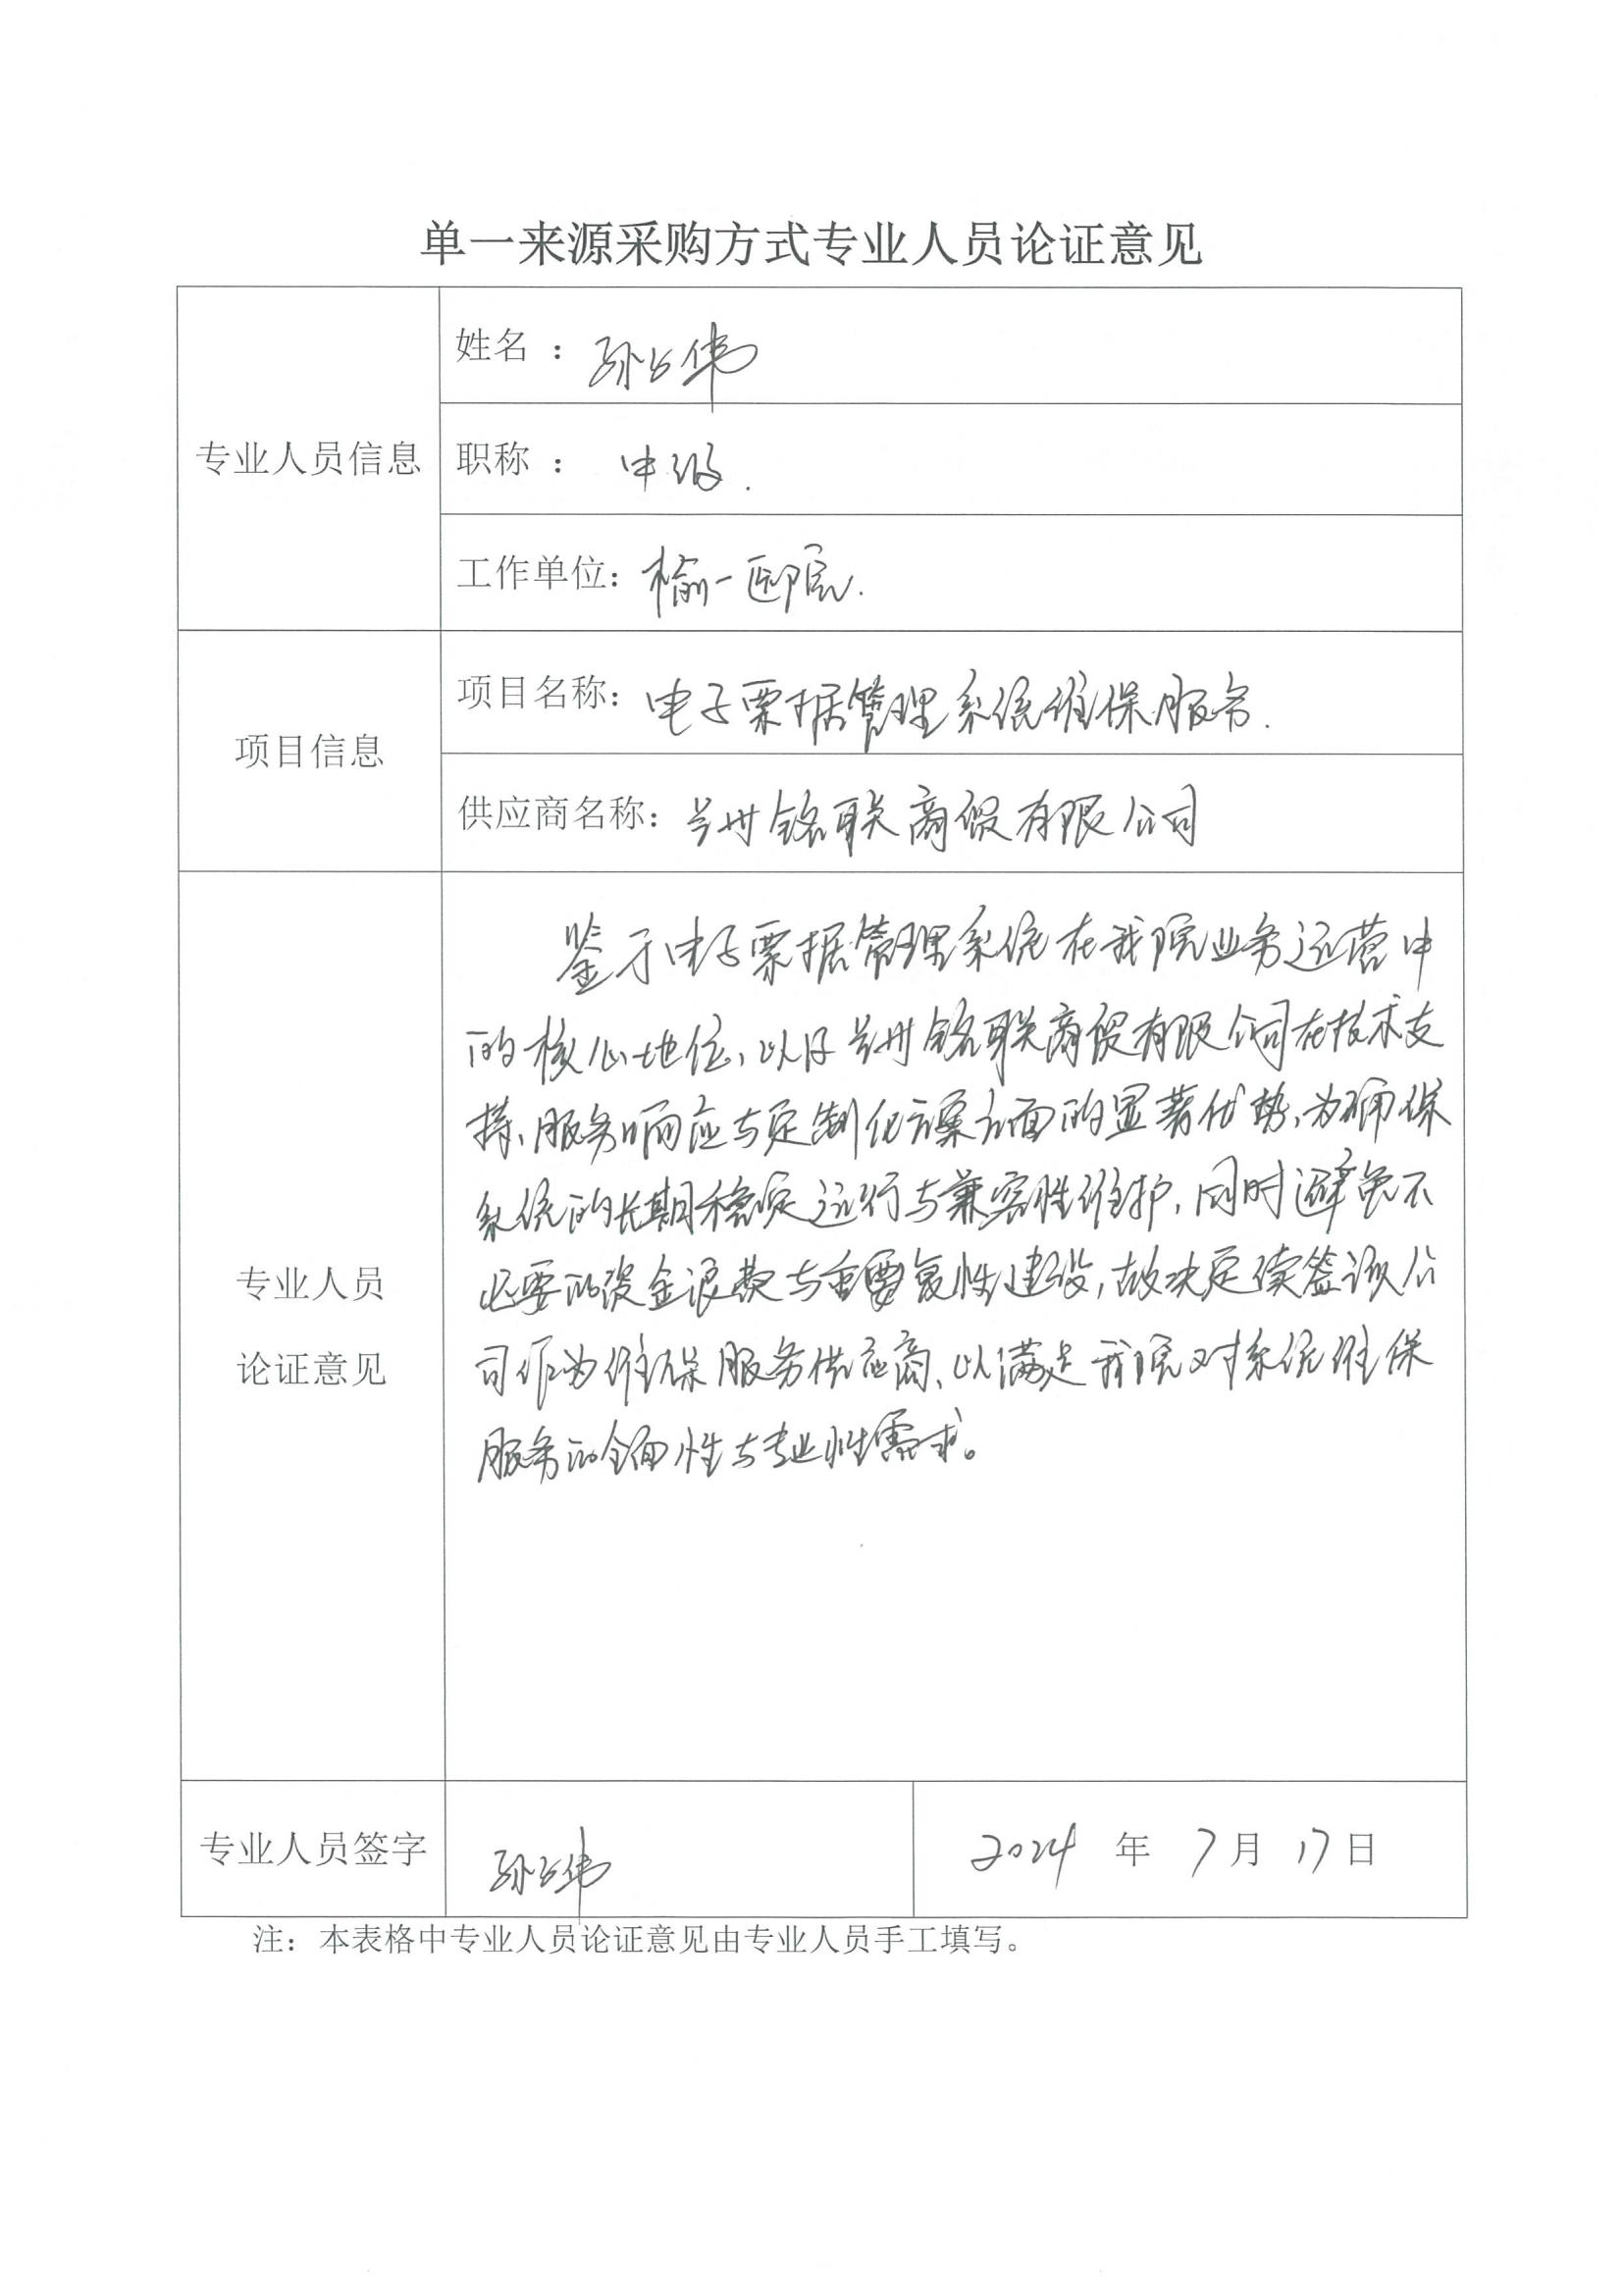 单一来源采购方式专业人员论证意见
专业人员信息
姓名 : 孙 伟
职称 : 中级.
工作单位: 榆一医院.
项目信息
项目名称: 电子票据管理系统维保服务.
供应商名称: 兰州铭联商贸有限公司
专业人员
论证意见
鉴于电子票据管理系统在我院业务运营中
的核心地位、以及兰州铭联商贸有限公司在技术支
持、服务响应与定制化方案方面的显著优势、为确保
系统的长期稳定运行与兼容性维护,同时避免不
必要的资金浪费与重复性建设,故决定续签该公
司作为维保服务供应商、以满足我院对系统维保
服务的全面性与专业性需求。
专业人员签字
孙 伟
2024 年 7月 17日
注: 本表格中专业人员论证意见由专业人员手工填写。